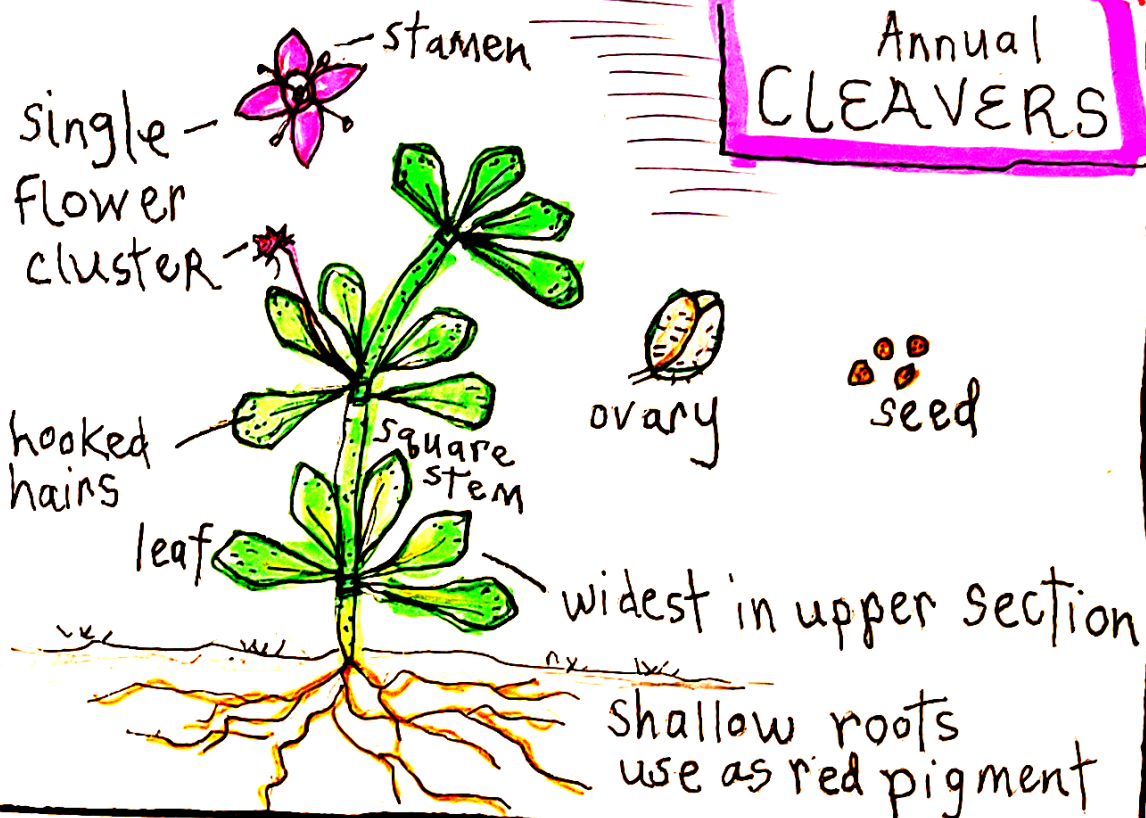 Annual
CLEAVERS
stamen
single
flower
cluster
ovary
seed
hooked
hairs
square
stem
leaf
widest in upper section
shallow roots
use as red pigment